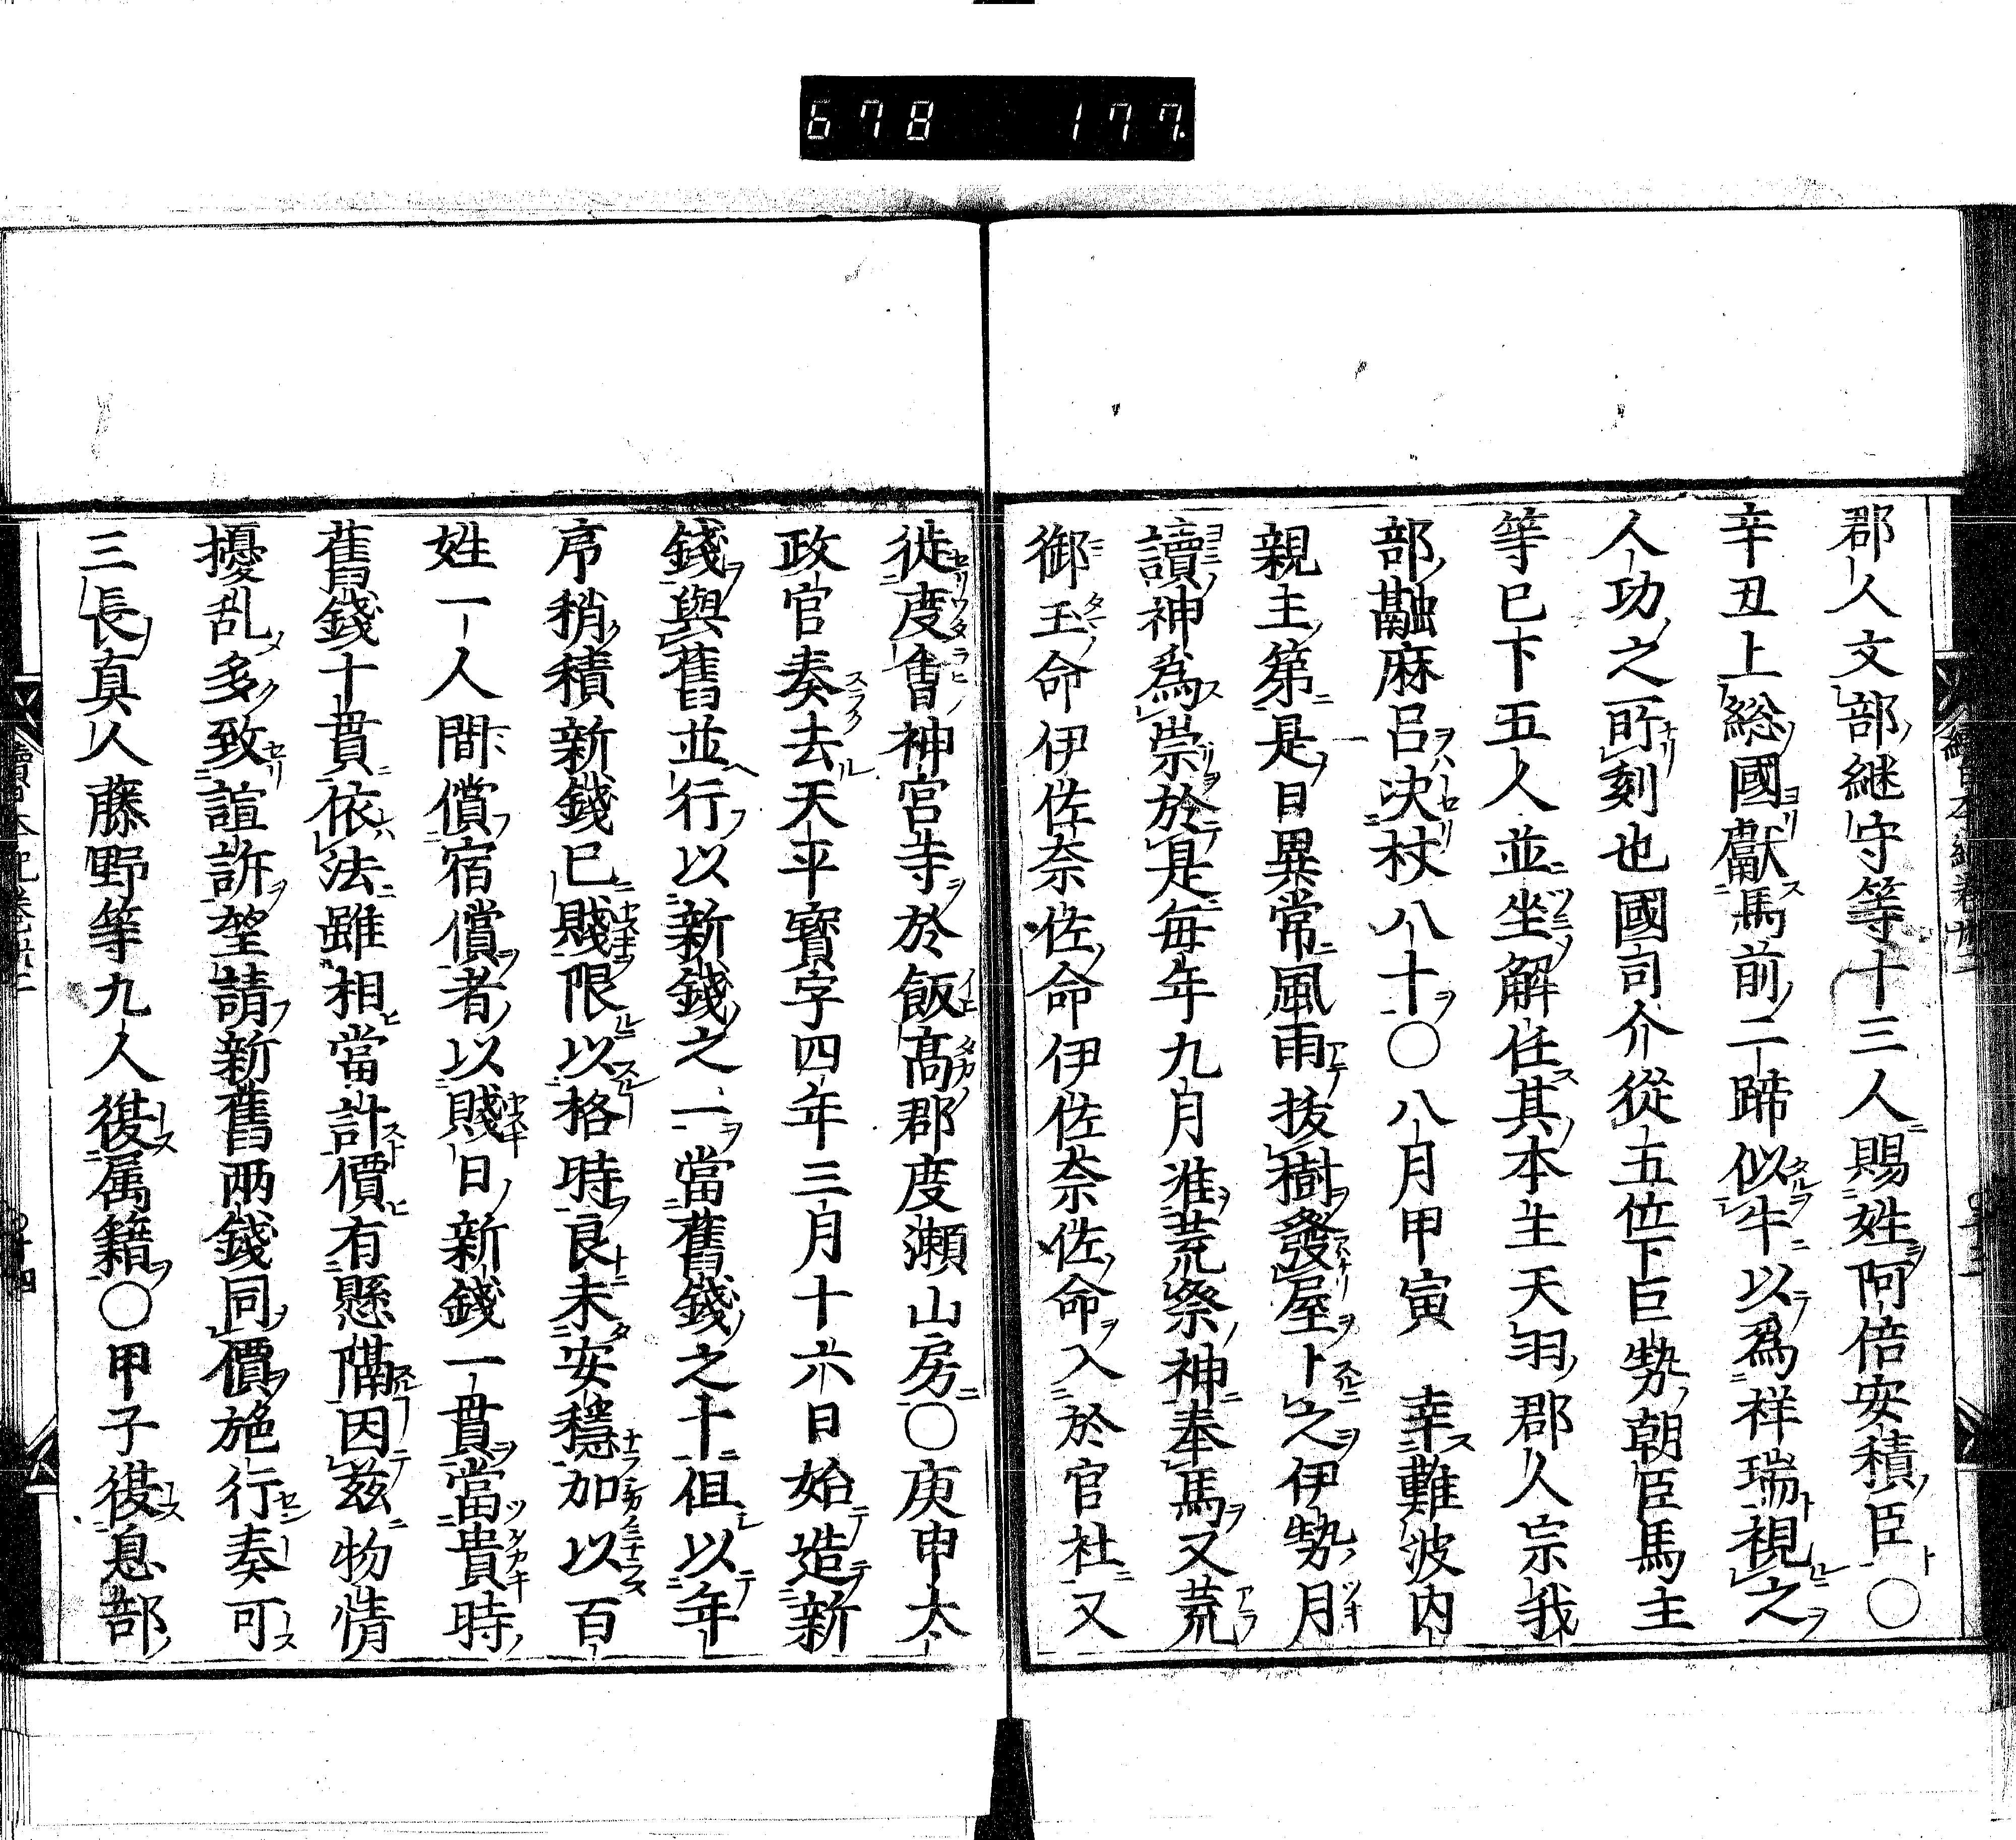 678 177
郡人文部継守等十三人賜姓阿倍安積臣○
辛丑上総國獻馬前二蹄似牛以爲祥瑞視之
人功之所刻也國司介從五位下巨勢朝臣馬主
等已下五人並坐解任其本主天羽郡人宗我
部虫麻呂決杖八十○八月甲寅 幸難波内
親主第是日異常風雨抜樹發屋卜之伊勢月
讀神爲崇於是毎年九月准荒祭神奉馬又荒
御王命伊佐奈佐命伊佐奈佐命入於官社又
徙度會神宮寺於飯髙郡度瀬山房○庚申太
政官奏去天平寳字四年三月十六日始造新
錢與舊並行以新錢之一當舊錢之十但以年
序稍積新錢已賤限以格時良未安穩加以百
姓一人間償宿償者以賤日新錢一貫當貴時
舊錢十貫依法雖相當計價有懸隔因玆物情
擾乱多致諠訴望請新舊兩錢同價施行奏可
三長真人藤野等九人復属籍○甲子復息部